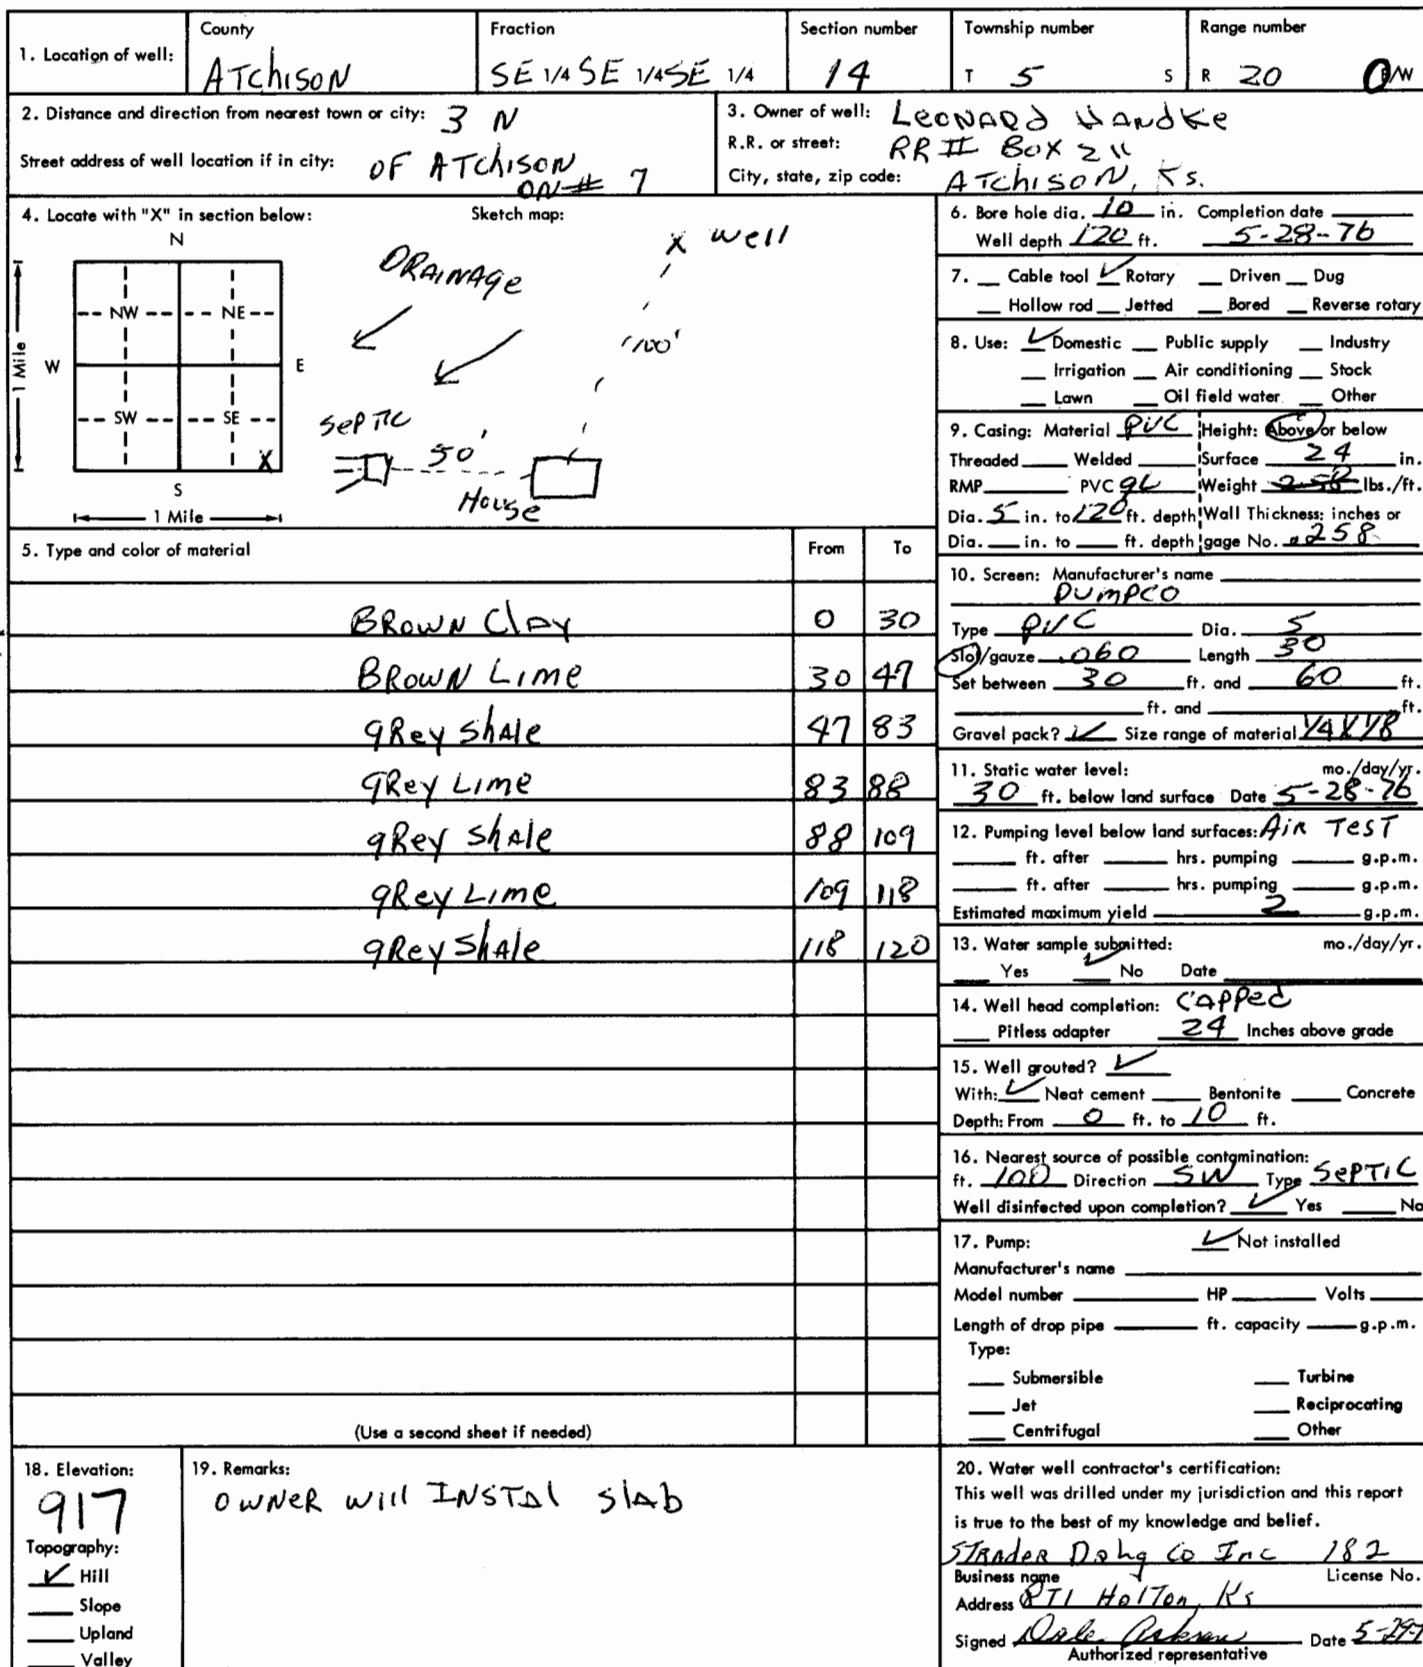 1. Location of well:
County
ATchison
Fraction
SE 1/4 SE 1/4 SE 1/4
Section number
14
Township number
T 5 S
Range number
R 20 E/W
2. Distance and direction from nearest town or city: 3 N
Street address of well location if in city: OF ATCHISON
ON # 7
3. Owner of well: LEONARD HANDKE
R.R. or street: RR II BOX 211
City, state, zip code: ATCHISON, Ks.
4. Locate with "X" in section below:
Sketch map:
N
NW NE
W E
SW SE
X
S
1 Mile
1 Mile
X well
DRAINAGE
100'
SEPTIC
50'
House
5. Type and color of material From To
BROWN Clay 0 30
BROWN Lime 30 47
gRey Shale 47 83
gRey Lime 83 88
gRey Shale 88 109
gRey Lime 109 118
gRey Shale 118 120
(Use a second sheet if needed)
6. Bore hole dia. 10 in. Completion date
Well depth 120 ft. 5-28-76
7. Cable tool ✓ Rotary Driven Dug
Hollow rod Jetted Bored Reverse rotary
8. Use: ✓ Domestic Public supply Industry
Irrigation Air conditioning Stock
Lawn Oil field water Other
9. Casing: Material PVC Height: Above or below
Threaded Welded Surface 24 in.
RMP PVC gL Weight 258 lbs./ft.
Dia. 5 in. to 120 ft. depth Wall Thickness: inches or
Dia. in. to ft. depth gage No. .258
10. Screen: Manufacturer's name
PUMPCO
Type PVC Dia. 5
Slot/gauze .060 Length 30
Set between 30 ft. and 60 ft.
ft. and ft.
Gravel pack? ✓ Size range of material 1/4 X 1/8
11. Static water level: mo./day/yr.
30 ft. below land surface Date 5-28-76
12. Pumping level below land surfaces: AIR TEST
ft. after hrs. pumping g.p.m.
ft. after hrs. pumping g.p.m.
Estimated maximum yield 2 g.p.m.
13. Water sample submitted: mo./day/yr.
Yes ✓ No Date
14. Well head completion: CAPPed
Pitless adapter 24 Inches above grade
15. Well grouted? ✓
With: ✓ Neat cement Bentonite Concrete
Depth: From 0 ft. to 10 ft.
16. Nearest source of possible contamination:
ft. 100 Direction SW Type SEPTIC
Well disinfected upon completion? ✓ Yes No
17. Pump: ✓ Not installed
Manufacturer's name
Model number HP Volts
Length of drop pipe ft. capacity g.p.m.
Type:
Submersible Turbine
Jet Reciprocating
Centrifugal Other
18. Elevation:
917
Topography:
✓ Hill
Slope
Upland
Valley
19. Remarks:
OWNER Will INSTAl SlAb
20. Water well contractor's certification:
This well was drilled under my jurisdiction and this report
is true to the best of my knowledge and belief.
STRADER Co Inc 182
Business name License No.
Address RT1 Holton, Ks
Signed Dale Date
Authorized representative